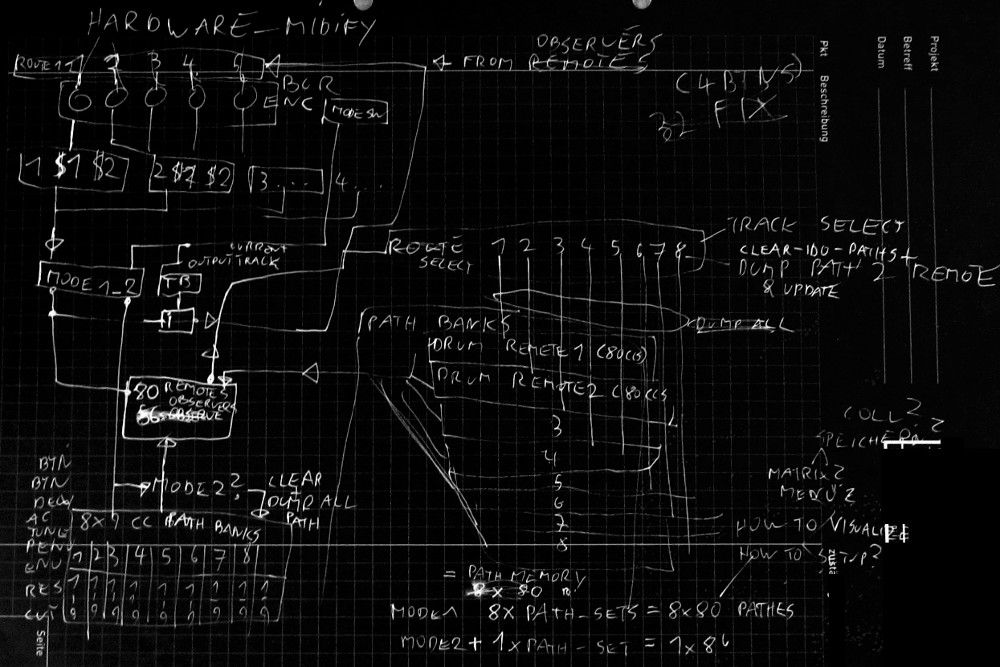 HARDWARE-MIDIFY
ROUTE 1 2 3 4 5
OBSERVERS
← FROM REMOTES
(4 BTNS)
32 FIX
BCR
ENC
MODE SW
1 $1 $2
2 $2 $2
3 ....
4 ...
MODE 1_2
CURRENT
OUTPUT TRACK
TB
i
ROUTE
SELECT
1 2 3 4 5 6 7 8
TRACK SELECT
CLEAR-IDO-PATHS+
DUMP PATH 2 REMOTE
& UPDATE
DUMP ALL
PATH BANKS
DRUM REMOTE 1 (80CCS)
DRUM REMOTE 2 (80CCS
3
4
5
6
7
8
80 REMOTES
OBSERVERS
OBSERVE
MODE 2?
CLEAR
+
DUMP ALL
PATH
BTN
BTN
DECAY
AC
TUNE
PENV
ENV
RES
CUT
8X9 CC PATH BANKS
1 2 3 4 5 6 7 8
1 1 1 1 1 1 1 1
9 9 9 9 9 9 9 9
= PATH MEMORY
8 X 80
MODE1 8X PATH-SETS = 8X80 PATHES
MODE2 + 1X PATH-SET = 1X8
COLL?
SPEICHERN?
MATRIX?
MENU?
HOW TO VISUALIZE
HOW TO SETUP?
Pkt
Beschreibung
Datum
Betreff
Projekt
zustä
Seite